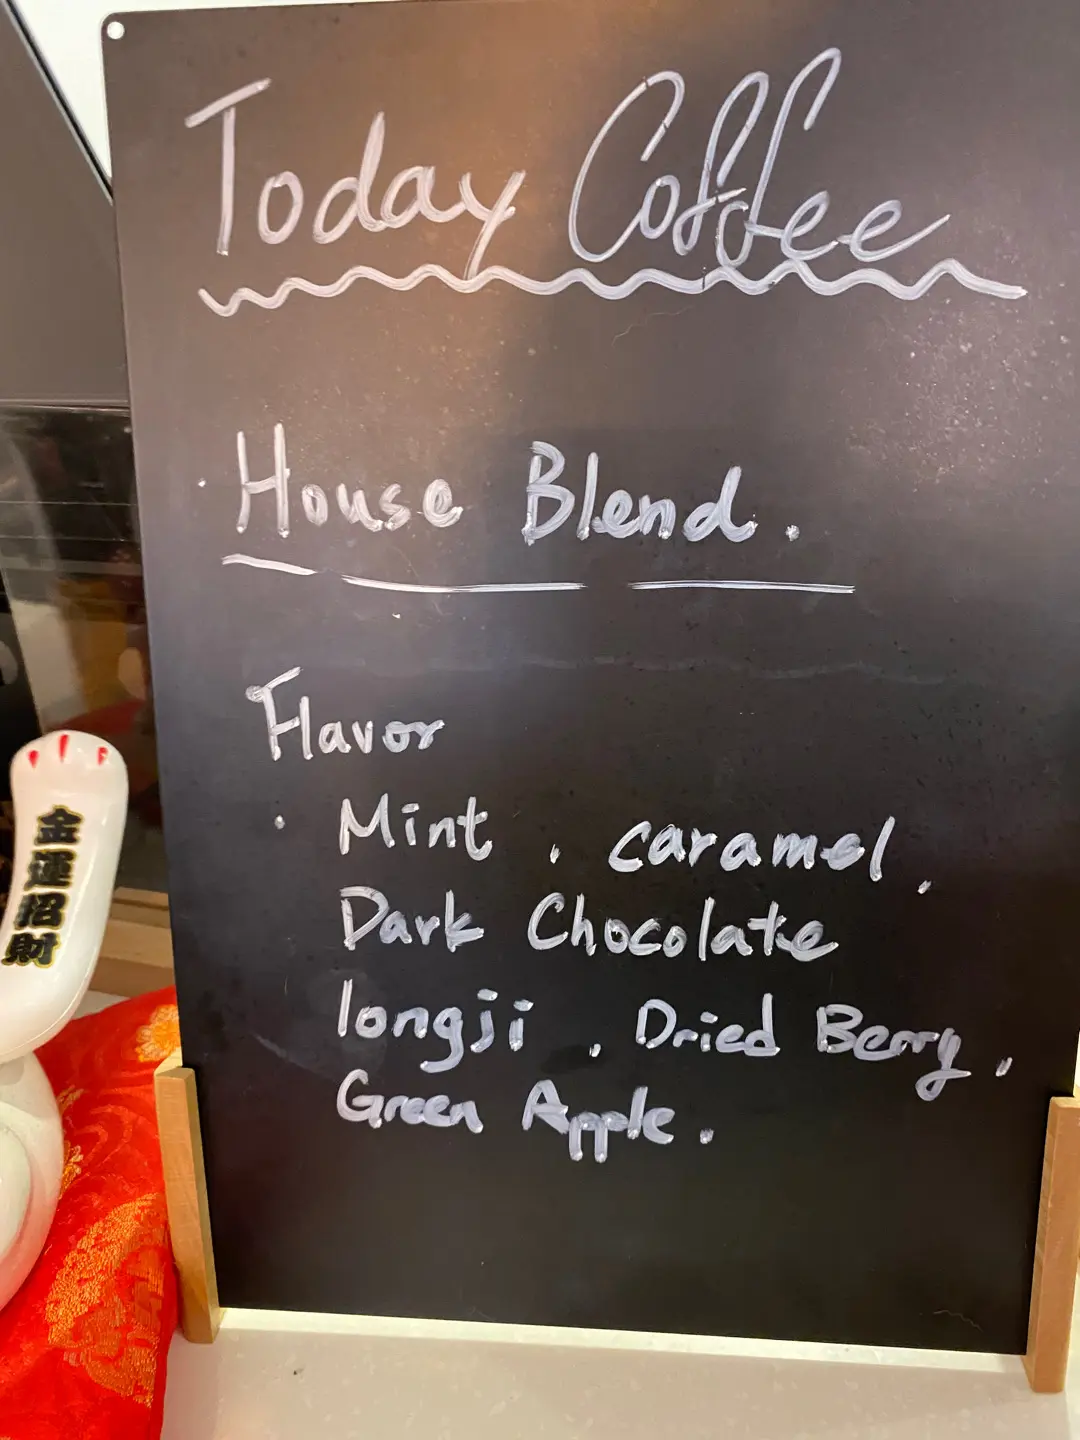 Today Coffee
· House Blend.
Flavor
· Mint, caramel,
Dark Chocolate
longji, Dried Berry,
Green Apple.
金運招財